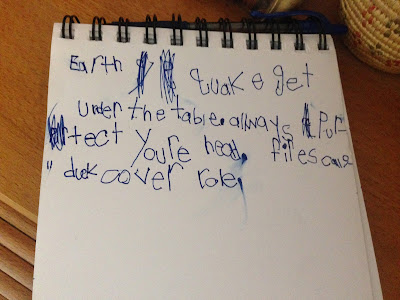 Earth quake get
under the table. allways
tect you're head.
duck cover role.